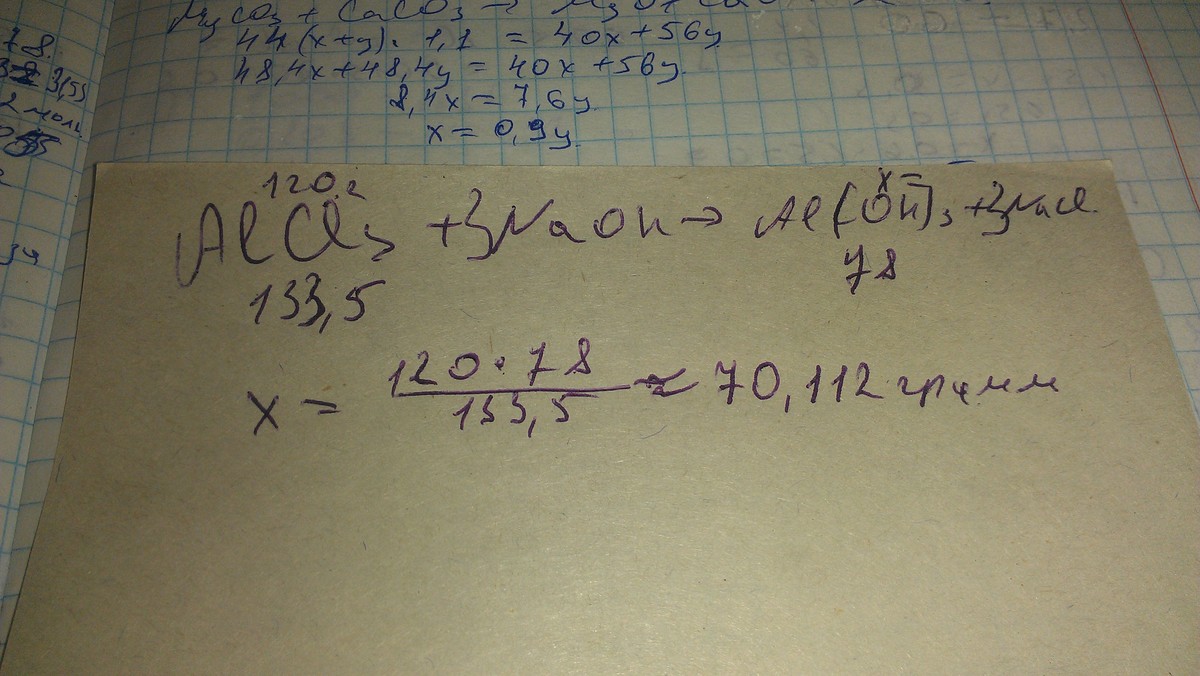 MgCO3 + CaCO3 → MgO + CaO
44(x+y) · 1,1 = 40x+56y
48,4x+48,4y = 40x+56y
8,4x = 7,6y
x = 0,9y
78.
2 моль
120 г x-
AlCl3 +3NaOH → Al(OH)3 +3NaCl
133,5 78
x = 120·78 / 133,5 ≈ 70,112 грамм